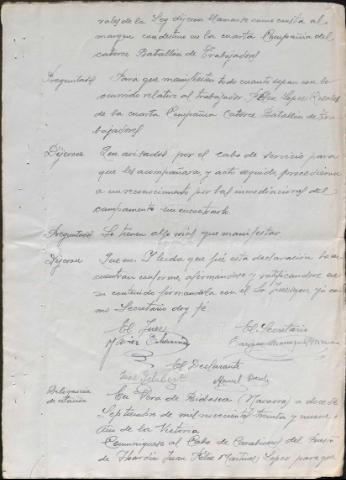 rales de la Ley dijeron llamarse como consta al
margen con destino en la cuarta Compañia del
catorce Batallón de Trabajadores
Preguntados Para que manifiesten todo cuanto sepan con lo
ocurrido relativo al trabajador Felix Lopez Rosales
de la cuarta Compañia Catorce Batallón de Tra
bajadores
Dijeron Que avisados por el cabo de servicio para
que les acompañara, y acto seguido procedieron
a un reconocimiento por las inmediaciones del
campamento sin encontrarle
Preguntados Si tienen algo más que manifestar
Dijeron Que no. Y leida que fué esta declaración la en
cuentran conforme, afirmandose y ratificandose en
su contenido firmandola con el Sr Juez que yo co
mo Secretario doy fé
El Juez El Secretario
El Declarante
Jose Manuel
Diligencia
de citación En Vera de Bidasoa (Navarra) a doce de
Septiembre de mil novecientos treinta y nueve
Año de la Victoria
Comuniquese al Cabo de Carabineros del Puesto
de Juan Felix Martinez Lopez para que